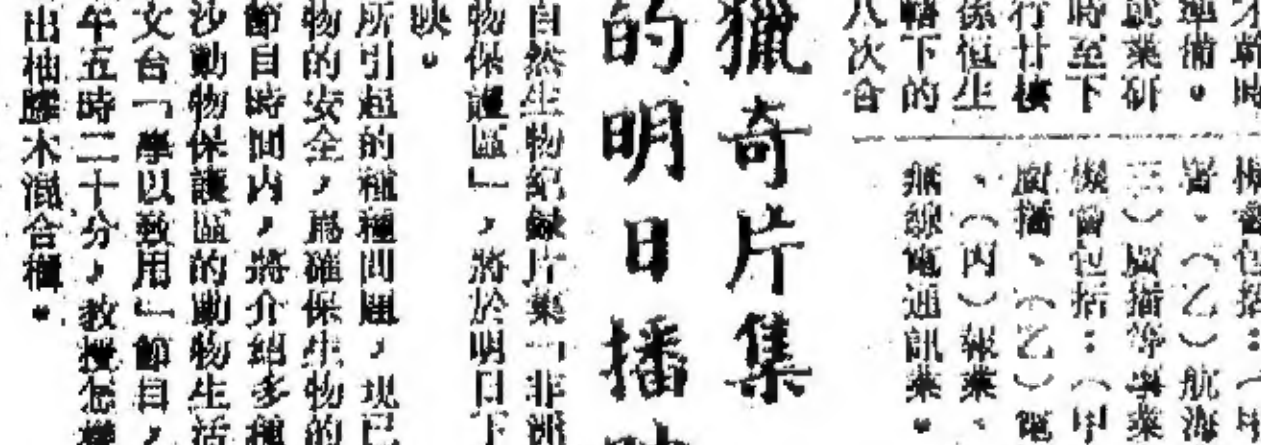 時
準備。
就業研
時至下
行廿樓
係恒生
轄下的
八次合
機會包括：（甲
署、（乙）航海
三）廣播等事業
機會包括：（甲
廣播、（乙）電
、（丙）報業、
無線電通訊業。
獵奇片集
的明日播
自然生物紀錄片集「非洲
物保護區」，將於明日下
映。
所引起的種種問題，現已
物的安全，爲確保生物的
節目時間內，將介紹多種
沙動物保護區的動物生活
文台「學以致用」節目，
午五時二十分，教授怎樣
出柚膠木混合櫃。